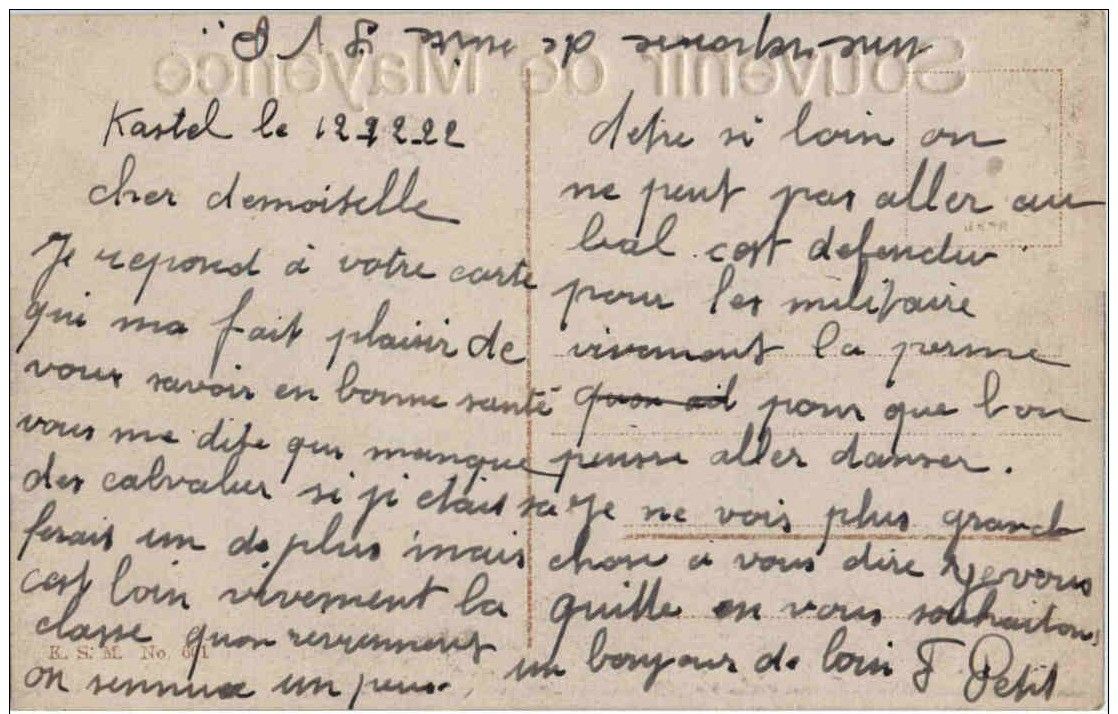 une reponse de suite S V P.
Souvenir de Mayence
Kastel le 12-2-22
cher demoiselle
Je repond à votre carte
qui ma fait plaisir de
vous savoir en bonne santé
vous me dite qui manque
des calvalier si ji etais sa
ferais un de plus mais
cest loin vivement la
classe quon
on sennuie un peu
detre si loin on
ne peut pas aller au
bal cest defendu
pour les militaire
vivement la perme
pour que lon
puisse aller danser.
Je ne vois plus grand
chose à vous dire Je vous
quitte en vous souhaitons
un bonjour de loin F Petit
K. S. M. No.